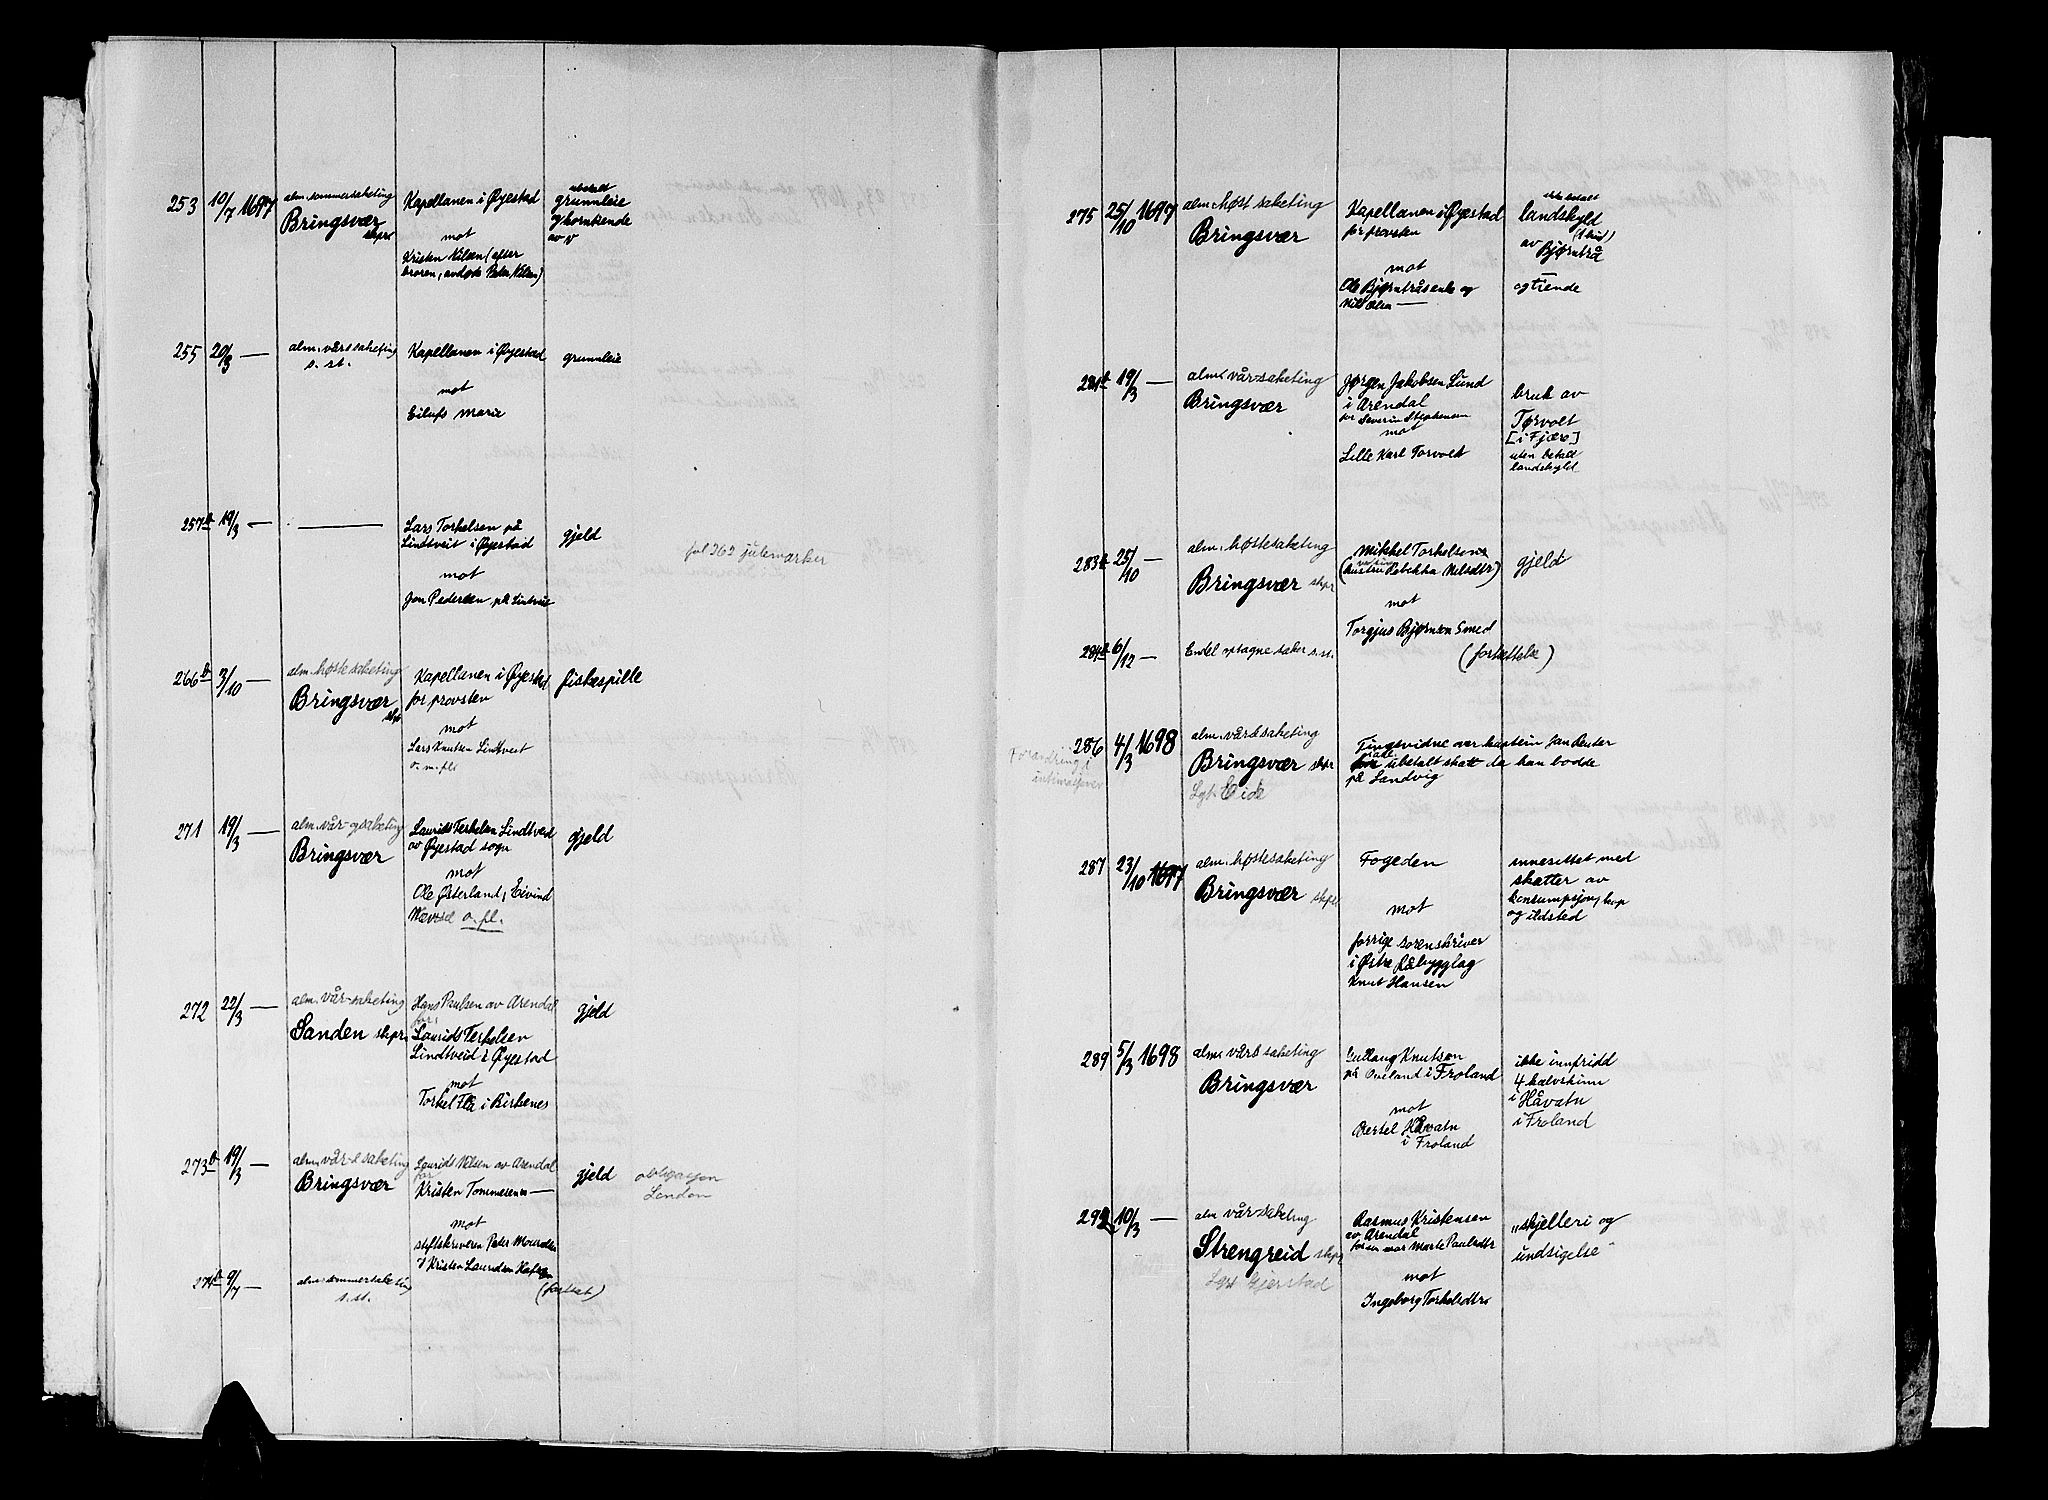 253 10/7 1697 alm. sommersaketing Kapellanen i Øyestad ubetalt
Bringsvær grunnleie
skpr mot og korntiende
Kristen Nilsen (efter av
broren, avdøde Peder Nilsen)
255 20/3 — alm. vårsaketing Kapellanen i Øyestad grunnleie
s. st. mot
Eilufs Marie
257b 19/3 — — Lars Torkelsen på gjeld
Lindtveit i Øyestad fol 262 julemærker
mot
Jon Pedersen på Lintveit
266b 3/10 — alm. høstesaketing Kapellanen i Øyestad fiskespille
Bringsvær for provsten
skpr mot
Lars Knutsen Lindtveit
o. m. fl.
271 19/3 — alm. vår-saketing Laurids Terkelsen Lindtveid gjeld
Bringsvær av Øyestad sogn
mot
Ole Østerland, Eivind
o. fl.
272 22/3 — alm. vår-saketing Hans Paulsen av Arendal gjeld
for
Sanden skpr Laurids Terkelsen
Lindtveid i Øyestad
mot
Torkel Flå i Birkenes
273b 19/3 — alm. vår-saketing Laurids Nilsen av Arendal gjeld obligasjon
for
Bringsvær Kristen Tommesen — London
mot
stiftskriveren Peder
Kristen Lauridsen
274b 9/7 — alm. sommersaketing (fortsat)
s. st.
275 25/10 1697 alm. høst saketing Kapellanen i Øyestad ikke betalt
Bringsvær for provsten landskyld
(1 hud)
mot av Bjørntrå
Ole Bjørntrås enke og og tiende
Nils Olsen —
281b 19/3 — alm. vår-saketing Jørgen Jakobsen Lund bruk av
Bringsvær i Arendal Tørvolt
for Severin Stephensen [i Fjære]
mot uten betalt
Lille Karl Torvolt landskyld
283b 25/10 — alm. høstesaketing Mikkel Torkelsens gjeld
Bringsvær skpr (hustru Rebekka Nilsdtr)
mot
Torgjus Bjørnson Smed
284b 6/12 — Endel optagne saker s. st. (fortsettelse)
286 4/3 1698 alm. vårsaketing Tingsvidne over kaptein Jan Reuter
Forandring i Bringsvær skpr ubetalt skatt da han bodde
Lgt. Eide på Landvig
287 23/10 1697 alm. høstesaketing Fogeden innesittet med
Bringsvær skpr skatter av
mot konsumpsjon,
og ildsted
forrige sorenskriver
i Østre Råbyggelag
Knut Hansen
289 5/3 1698 alm. vårsaketing Gudlaug Knutson ikke innfridd
Bringsvær på i Froland 4 kalvskinn
mot i Håvatn
Bertel Håvatn i Froland
i Froland
292 10/3 — alm vårsaketing Rasmus Kristensen „skjelleri og
av Arendal
Strengreid skpr for sin mor Marte Paulsdtr undsigelse“
Lgt Gjerstad mot
Ingeborg Torkelsdtr